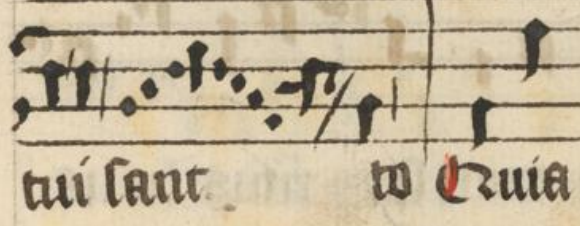 tui sanc to Quia